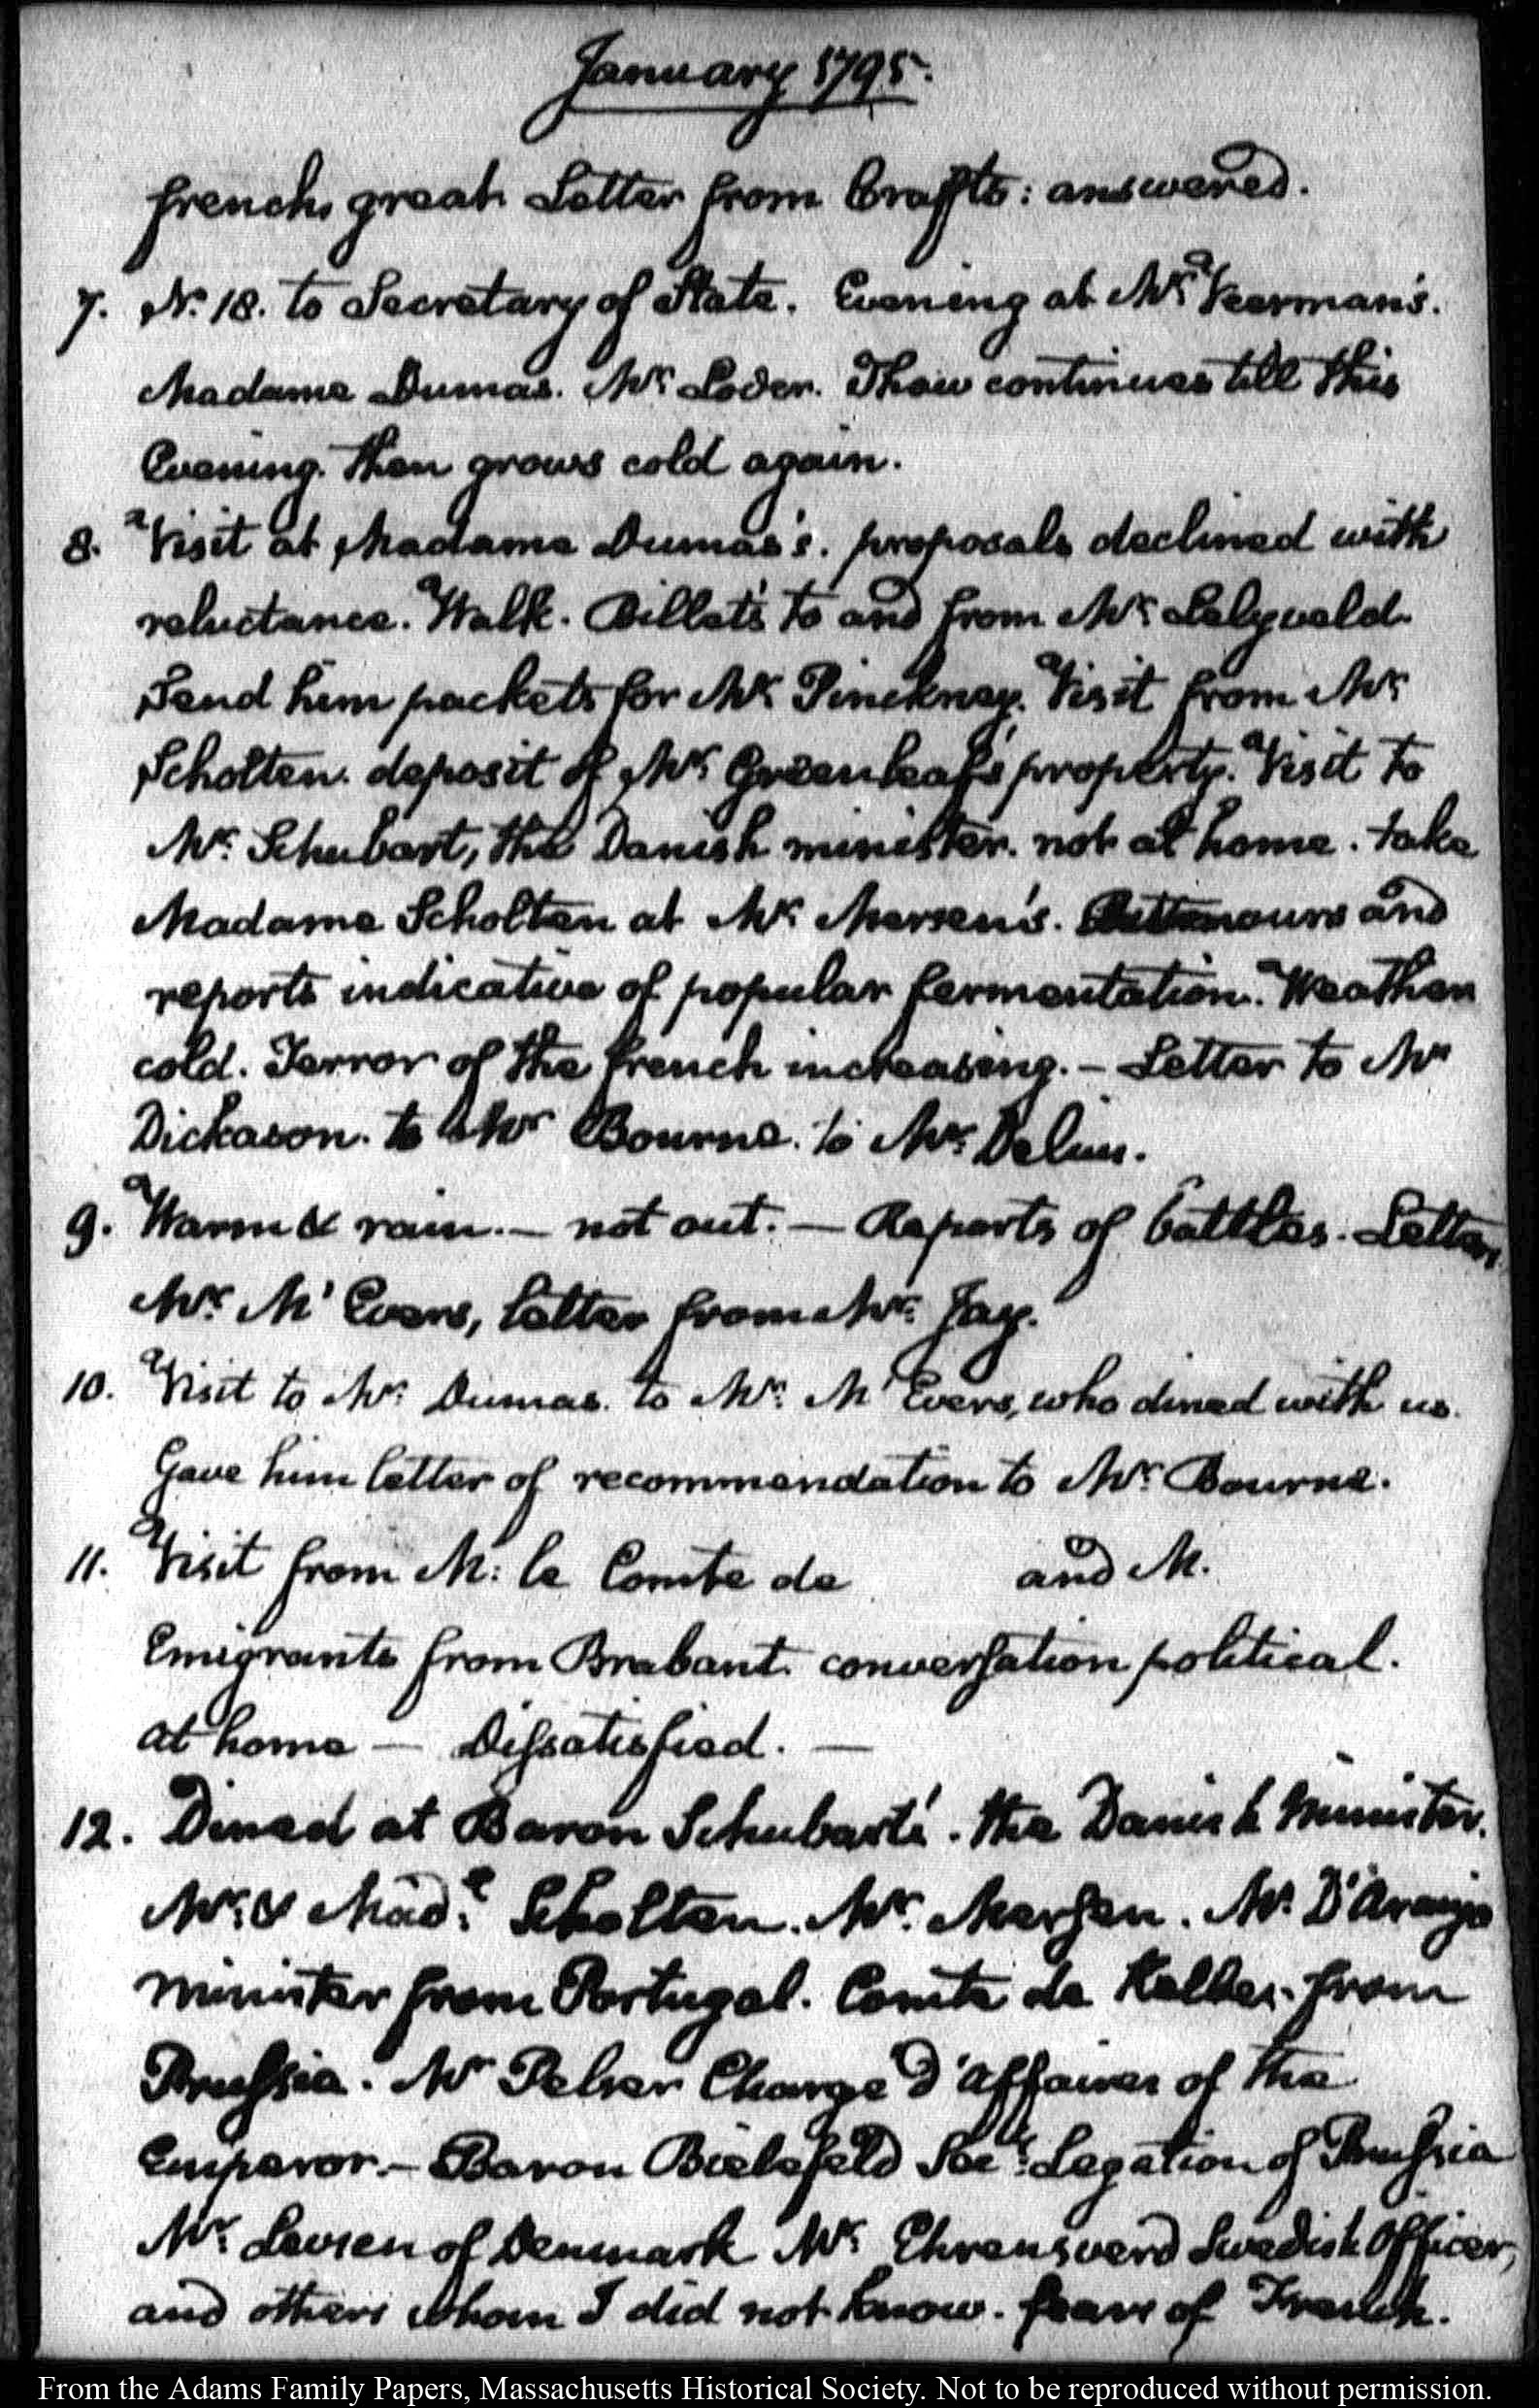 January 1795.
french, great. Letter from Crafts: answered.
7. N. 18. to Secretary of State. Evening at Mr. Veerman's.
Madame Dumas. Mr. Loder. Thaw continues till this
Evening. Then grows cold again.
8. Visit at Madame Dumas's. proposals declined with
reluctance. Walk. Billets to and from Mr. Lelyveld.
Send him packets for Mr. Pinckney. Visit from Mr.
Scholten. deposit of Mr. Greenleaf's property. Visit to
Mr. Schubart, the Danish minister. not at home. take
Madame Scholten at Mr. Mersen's. and
reports indicative of popular fermentation. Weather
cold. Terror of the french increasing. — Letter to Mr
Dickason. to Mr Bourne. to Mr. Delius.
9. Warm & rain. — not out. — Reports of battles. Letter
Mr. Mc'Evers, letter from Mr. Jay.
10. Visit to Mr. Dumas. to Mr. Mc Evers, who dined with us.
Gave him letter of recommendation to Mr. Bourne.
11. Visit from M: le Comte de and M.
Emigrants from Brabant. conversation political.
at home — Dissatisfied. —
12. Dined at Baron Schubart's. the Danish Minister.
Mr. & Made. Scholten. Mr. Mersen. Mr. D'Araujo
minister from Portugal. Comte de Keller from
Prussia. Mr Pelser Chargé D'affaires of the
Emperor. — Baron Bielefeld Secy. Legation of Prussia
Mr. Levsen of Denmark Mr. Ehrensverd Swedish Officer,
and others whom I did not know. fears of French.
From the Adams Family Papers, Massachusetts Historical Society. Not to be reproduced without permission.